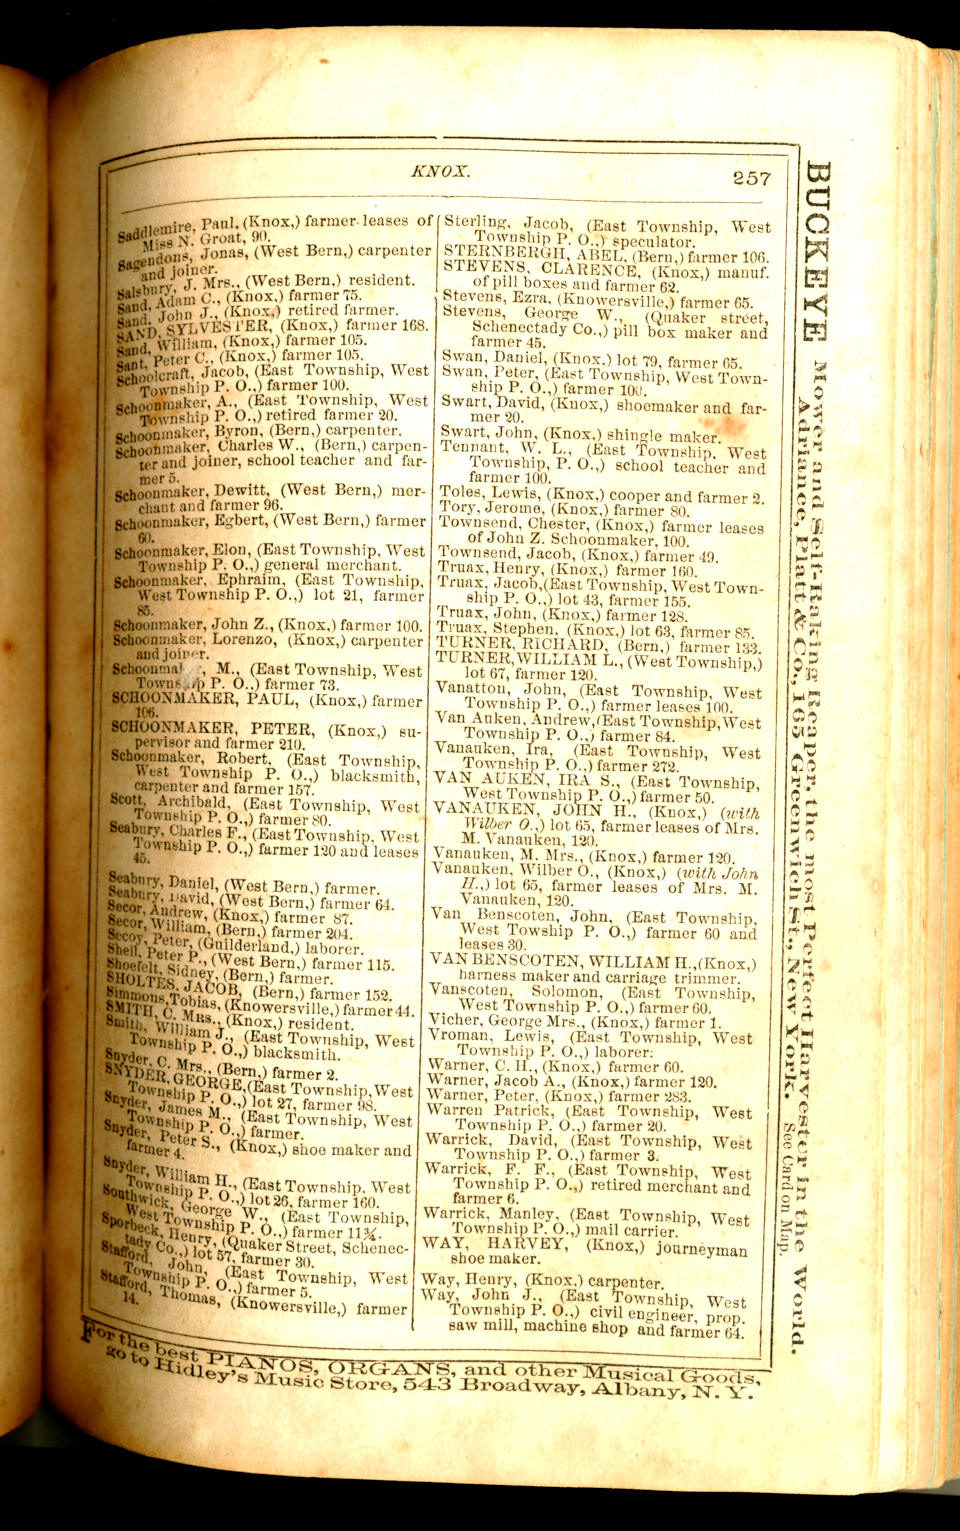 KNOX.
257
Saddlemire, Paul, (Knox,) farmer leases of
Miss N. Groat, 90.
Sagendons, Jonas, (West Bern,) carpenter
and joiner.
Salsbury, J. Mrs., (West Bern,) resident.
Sand, Adam C., (Knox,) farmer 75.
Sand, John J., (Knox,) retired farmer.
SAND, SYLVESTER, (Knox,) farmer 168.
Sand, William, (Knox,) farmer 105.
Sant, Peter C., (Knox,) farmer 105.
Schoolcraft, Jacob, (East Township, West
Township P. O.,) farmer 100.
Schoonmaker, A., (East Township, West
Township P. O.,) retired farmer 20.
Schoonmaker, Byron, (Bern,) carpenter.
Schoonmaker, Charles W., (Bern,) carpen-
ter and joiner, school teacher and far-
mer 5.
Schoonmaker, Dewitt, (West Bern,) mer-
chant and farmer 96.
Schoonmaker, Egbert, (West Bern,) farmer
60.
Schoonmaker, Elon, (East Township, West
Township P. O.,) general merchant.
Schoonmaker, Ephraim, (East Township,
West Township P. O.,) lot 21, farmer
85.
Schoonmaker, John Z., (Knox,) farmer 100.
Schoonmaker, Lorenzo, (Knox,) carpenter
and joiner.
M., (East Township, West
Township P. O.,) farmer 73.
SCHOONMAKER, PAUL, (Knox,) farmer
106.
SCHOONMAKER, PETER, (Knox,) su-
pervisor and farmer 210.
Schoonmaker, Robert, (East Township,
West Township P. O.,) blacksmith,
carpenter and farmer 157.
Scott, Archibald, (East Township, West
Township P. O.,) farmer 80.
Seabury, Charles F., (East Township, West
Township P. O.,) farmer 120 and leases
45.
Seabury, Daniel, (West Bern,) farmer.
Seabury, David, (West Bern,) farmer 64.
Secor, Andrew, (Knox,) farmer 87.
Secor, William, (Bern,) farmer 204.
Secoy, Peter, (Guilderland,) laborer.
Shell, Peter P., (West Bern,) farmer 115.
Shoefelt, Sidney, (Bern,) farmer.
SHOLTES, JACOB, (Bern,) farmer 152.
Simmons, Tobias, (Knowersville,) farmer 44.
SMITH, C. MRS., (Knox,) resident.
Smith, William J., (East Township, West
Township P. O.,) blacksmith.
Snyder, C. Mrs., (Bern,) farmer 2.
SNYDER, GEORGE, (East Township, West
Township P. O.,) lot 27, farmer 98.
Snyder, James M., (East Township, West
Township P. O.,) farmer.
Snyder, Peter S., (Knox,) shoe maker and
farmer 4.
Snyder, William H., (East Township, West
Township P. O.,) lot 26, farmer 160.
Southwick, George W., (East Township,
West Township P. O.,) farmer 11¾.
Sporbeck, Henry, (Quaker Street, Schenec-
tady Co.,) lot 57, farmer 30.
Stafford, John, (East Township, West
Township P. O.,) farmer 5.
Stafford, Thomas, (Knowersville,) farmer
14.
Sterling, Jacob, (East Township, West
Township P. O.,) speculator.
STERNBERGH, ABEL, (Bern,) farmer 106.
STEVENS, CLARENCE, (Knox,) manuf.
of pill boxes and farmer 62.
Stevens, Ezra, (Knowersville,) farmer 65.
Stevens, George W., (Quaker street,
Schenectady Co.,) pill box maker and
farmer 45.
Swan, Daniel, (Knox,) lot 79, farmer 65.
Swan, Peter, (East Township, West Town-
ship P. O.,) farmer 100.
Swart, David, (Knox,) shoemaker and far-
mer 20.
Swart, John, (Knox,) shingle maker.
Tennant, W. L., (East Township, West
Township, P. O.,) school teacher and
farmer 100.
Toles, Lewis, (Knox,) cooper and farmer 2.
Tory, Jerome, (Knox,) farmer 80.
Townsend, Chester, (Knox,) farmer leases
of John Z. Schoonmaker, 100.
Townsend, Jacob, (Knox,) farmer 49.
Truax, Henry, (Knox,) farmer 160.
Truax, Jacob, (East Township, West Town-
ship P. O.,) lot 43, farmer 155.
Truax, John, (Knox,) farmer 128.
Truax, Stephen, (Knox,) lot 63, farmer 85.
TURNER, RICHARD, (Bern,) farmer 133.
TURNER, WILLIAM L., (West Township,)
lot 67, farmer 120.
Vanatton, John, (East Township, West
Township P. O.,) farmer leases 100.
Van Auken, Andrew, (East Township, West
Township P. O.,) farmer 84.
Vanauken, Ira, (East Township, West
Township P. O.,) farmer 272.
VAN AUKEN, IRA S., (East Township,
West Township P. O.,) farmer 50.
VANAUKEN, JOHN H., (Knox,) (with
Wilber O.,) lot 65, farmer leases of Mrs.
M. Vanauken, 120.
Vanauken, M. Mrs., (Knox,) farmer 120.
Vanauken, Wilber O., (Knox,) (with John
H.,) lot 65, farmer leases of Mrs. M.
Vanauken, 120.
Van Benscoten, John, (East Township,
West Towship P. O.,) farmer 60 and
leases 30.
VAN BENSCOTEN, WILLIAM H., (Knox,)
harness maker and carriage trimmer.
Vanscoten, Solomon, (East Township,
West Township P. O.,) farmer 60.
Vicher, George Mrs., (Knox,) farmer 1.
Vroman, Lewis, (East Township, West
Township P. O.,) laborer.
Warner, C. H., (Knox,) farmer 60.
Warner, Jacob A., (Knox,) farmer 120.
Warner, Peter, (Knox,) farmer 283.
Warren Patrick, (East Township, West
Township P. O.,) farmer 20.
Warrick, David, (East Township, West
Township P. O.,) farmer 3.
Warrick, F. F., (East Township, West
Township P. O.,) retired merchant and
farmer 6.
Warrick, Manley, (East Township, West
Township P. O.,) mail carrier.
WAY, HARVEY, (Knox,) journeyman
shoe maker.
Way, Henry, (Knox,) carpenter.
Way, John J., (East Township, West
Township P. O.,) civil engineer, prop.
saw mill, machine shop and farmer 64.
BUCKEYE Mower and Self-Raking Reaper, the most Perfect Harvester in the World.
Adriance, Platt & Co., 165 Greenwich St., New York. See Card on Map.
For the best PIANOS, ORGANS, and other Musical Goods,
go to Hidley's Music Store, 543 Broadway, Albany, N. Y.